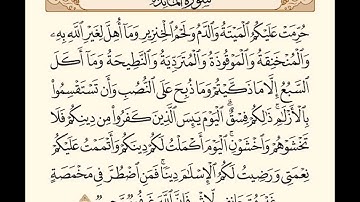 سورة المائدة
حُرِّمَتْ عَلَيْكُمُ ٱلْمَيْتَةُ وَٱلدَّمُ وَلَحْمُ ٱلْخِنزِيرِ وَمَآ أُهِلَّ لِغَيْرِ ٱللَّهِ بِهِۦ
وَٱلْمُنْخَنِقَةُ وَٱلْمَوْقُوذَةُ وَٱلْمُتَرَدِّيَةُ وَٱلنَّطِيحَةُ وَمَآ أَكَلَ
ٱلسَّبُعُ إِلَّا مَا ذَكَّيْتُمْ وَمَا ذُبِحَ عَلَى ٱلنُّصُبِ وَأَن تَسْتَقْسِمُوا۟
بِٱلْأَزْلَٰمِ ۚ ذَٰلِكُمْ فِسْقٌ ۗ ٱلْيَوْمَ يَئِسَ ٱلَّذِينَ كَفَرُوا۟ مِن دِينِكُمْ فَلَا
تَخْشَوْهُمْ وَٱخْشَوْنِ ۚ ٱلْيَوْمَ أَكْمَلْتُ لَكُمْ دِينَكُمْ وَأَتْمَمْتُ عَلَيْكُمْ
نِعْمَتِى وَرَضِيتُ لَكُمُ ٱلْإِسْلَٰمَ دِينًا ۚ فَمَنِ ٱضْطُرَّ فِى مَخْمَصَةٍ